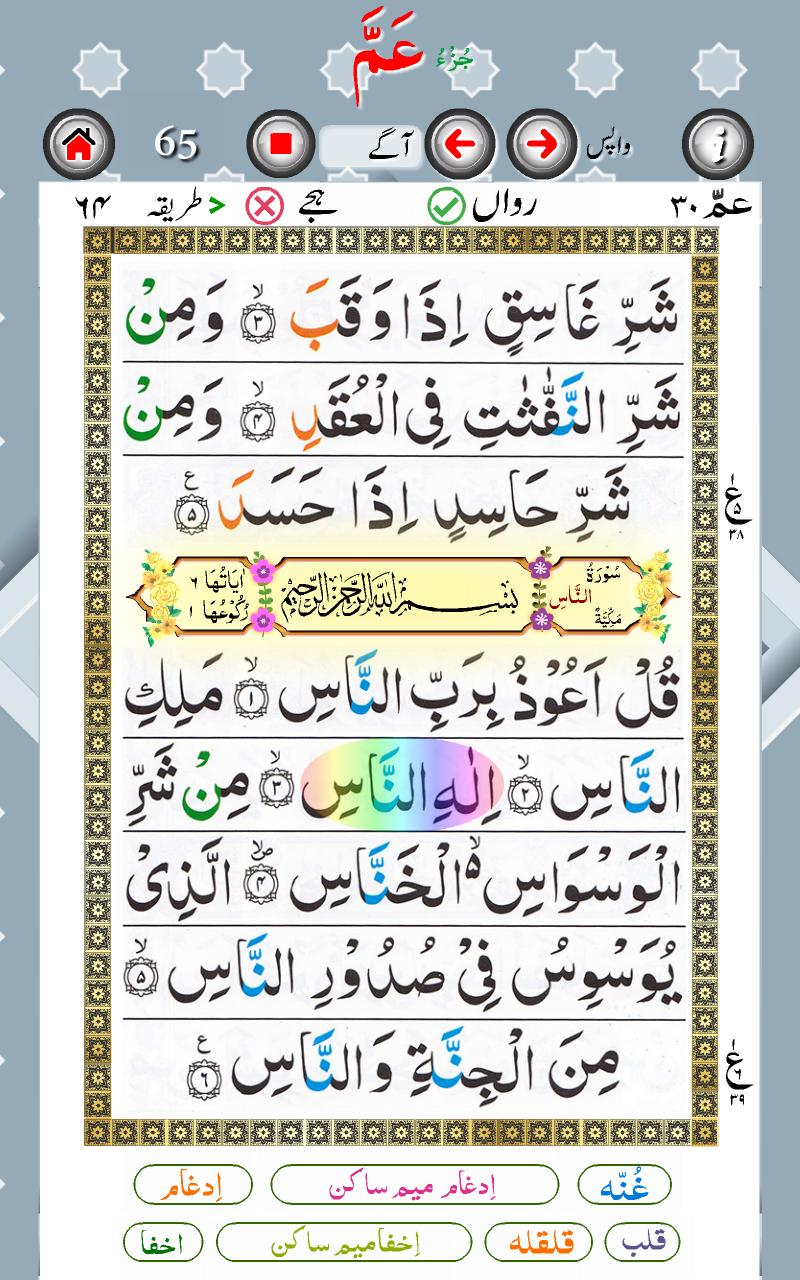 جُزْءُ عَمَّ
65 آگے واپس i
عمّ ۳۰ رواں ہجے > طریقہ ۶۴
شَرِّ غَاسِقٍ اِذَا وَقَبَ ۙ﴿۳﴾ وَمِنْ
شَرِّ النَّفّٰثٰتِ فِی الْعُقَدِ ۙ﴿۴﴾ وَمِنْ
شَرِّ حَاسِدٍ اِذَا حَسَدَ ﴿۵﴾ ع
ع ۵ ۳۸
سُوْرَةُ النَّاسِ مَكِّيَّةٌ
بِسْمِ اللّٰهِ الرَّحْمٰنِ الرَّحِيْمِ
اٰيَاتُهَا ۶
رُكُوْعُهَا ۱
قُلْ اَعُوْذُ بِرَبِّ النَّاسِ ۙ﴿۱﴾ مَلِكِ
النَّاسِ ۙ﴿۲﴾ اِلٰهِ النَّاسِ ۙ﴿۳﴾ مِنْ شَرِّ
الْوَسْوَاسِ ۙ۬ الْخَنَّاسِ ۪ۙ﴿۴﴾ الَّذِیْ
يُوَسْوِسُ فِیْ صُدُوْرِ النَّاسِ ۙ﴿۵﴾
مِنَ الْجِنَّةِ وَالنَّاسِ ﴿۶﴾ ع
ع ۶ ۳۹
غُنّه اِدغام میم ساکن اِدغام
قلب قلقله اِخفا میم ساکن اخفا